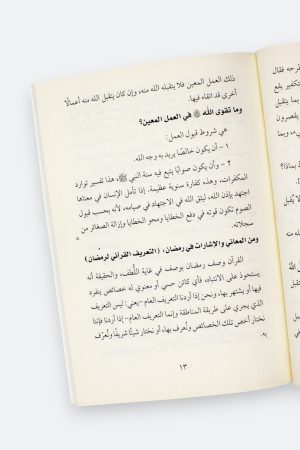 ذلك العمل المعين فلا يتقبله الله منه، وإن كان يتقبل الله منه أعمالًا
أخرى قد اتقاه فيها.
وما تقوى الله ﷻ في العمل المعين؟
هي شروط قبول العمل:
١ - أن يكون خالصًا يريد به وجه الله.
٢ - وأن يكون صوابًا يتبع فيه سنة النبي ﷺ، هذا تفسير توارد
المكفرات، وهذه كفارة سنوية عظيمة. إذا تأمل الإنسان في معناها
اجتهد بإذن الله، ليتق الله في الاجتهاد في صيامه، لأنه بحسب قبول
الصوم تكون قوته في دفع الخطايا ومحو الخطايا وإزالة الصغائر من
سجلاته.
ومن المعاني والإشارات في رمضان، (التعريف القرآني لرمضان)
القرآن وصف رمضان بوصف في غاية اللُّطف، والحقيقة أنه
يستحوذ على الانتباه، فأي كائن حسي أو معنوي له خصائص ينفرد
فيها أو يشتهر بها، ونحن إذا أردنا التعريف العام -يعني: ليس التعريف
الذي يجري على طريقة المناطقة وإنما التعريف العام- إذا أردنا فإننا
نختار أخص تلك الخصائص ونُعرف بها، أو نختار شيئًا شريفًا ونُعرّف
به.
١٣
فرحه فقال
التكفير يقع
يقصرون
وبما
بماذا؟